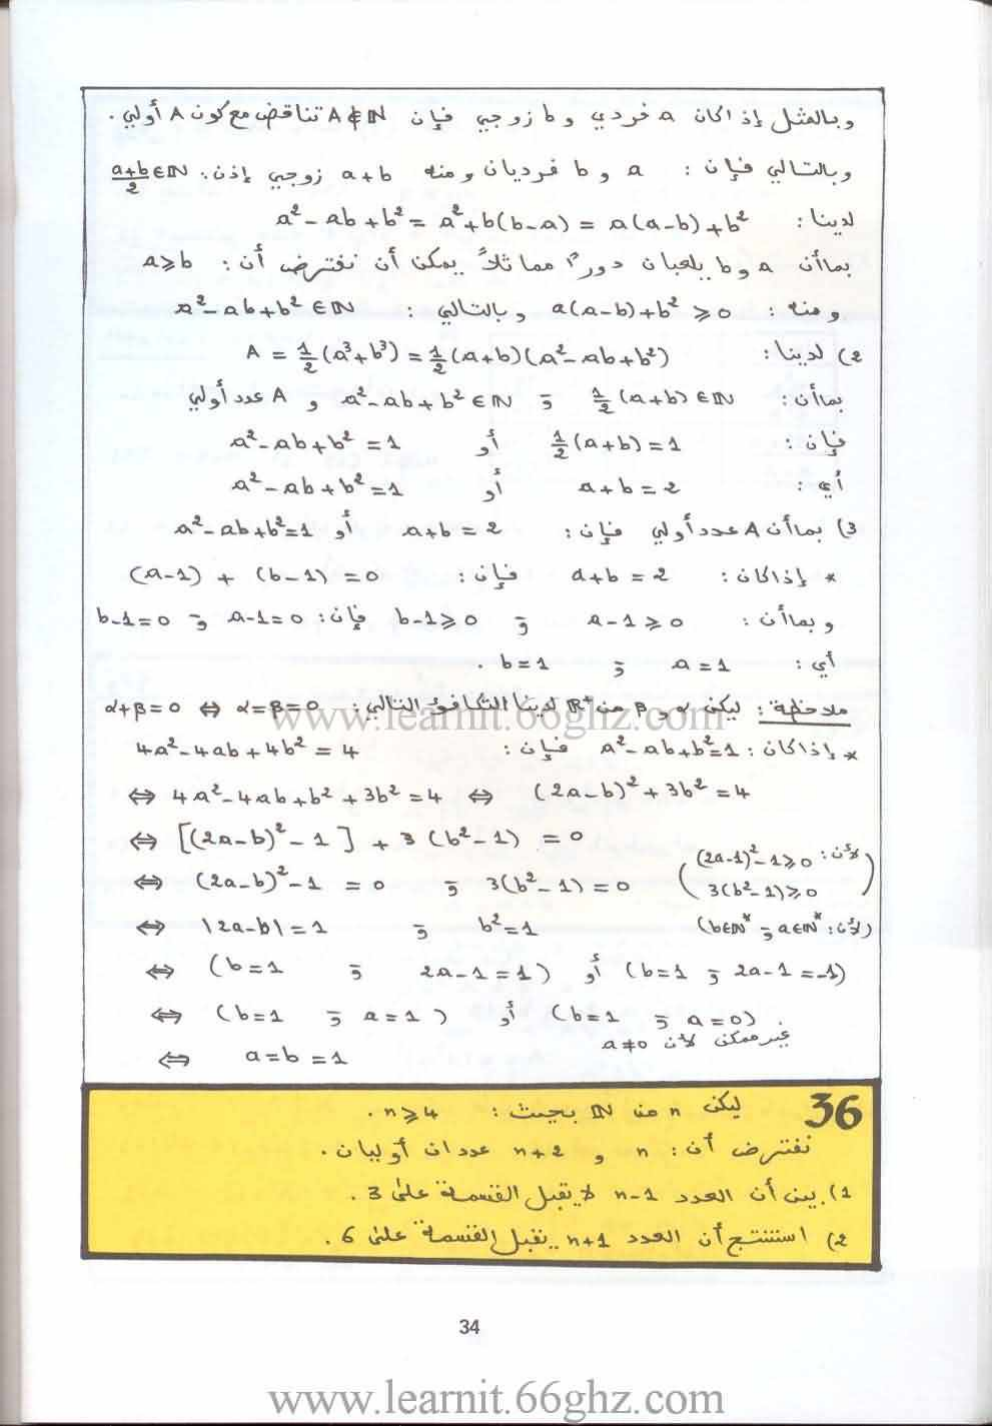 وبالمثل إذا كان a فردي و b زوجي فإن A ∉ ℕ تناقض مع كون A أولي .
وبالتالي فإن : a و b فرديان ومنه a+b زوجي إذن : (a+b)/2 ∈ ℕ
لدينا : a² - ab + b² = a² + b(b-a) = a(a-b) + b²
بما أن a و b يلعبان دورًا مماثلاً يمكن أن نفترض أن : a ⩾ b
ومنه : a(a-b) + b² ⩾ 0 وبالتالي : a² - ab + b² ∈ ℕ
2) لدينا : A = ½(a³ + b³) = ½(a+b)(a² - ab + b²)
بما أن : ½(a+b) ∈ ℕ و a² - ab + b² ∈ ℕ و A عدد أولي
فإن : ½(a+b) = 1 أو a² - ab + b² = 1
أي : a+b = 2 أو a² - ab + b² = 1
3) بما أن A عدد أولي فإن : a+b = 2 أو a² - ab + b² = 1
* إذا كان : a+b = 2 فإن : (a-1) + (b-1) = 0
وبما أن : a-1 ⩾ 0 و b-1 ⩾ 0 فإن : a-1 = 0 و b-1 = 0
أي : a = 1 و b = 1 .
ملاحظة : ليكن α و β من ℝ⁺ لدينا التكافؤ التالي : α+β = 0 ⇔ α = β = 0
www.learnit.66ghz.com
* إذا كان : a² - ab + b² = 1 فإن : 4a² - 4ab + 4b² = 4
⇔ 4a² - 4ab + b² + 3b² = 4 ⇔ (2a-b)² + 3b² = 4
⇔ [(2a-b)² - 1] + 3(b² - 1) = 0
⇔ (2a-b)² - 1 = 0 و 3(b² - 1) = 0 (لأن : (2a-1)² - 1 ⩾ 0
3(b² - 1) ⩾ 0)
⇔ |2a-b| = 1 و b² = 1 (لأن : a ∈ ℕ* و b ∈ ℕ*)
⇔ (b = 1 و 2a-1 = 1) أو (b = 1 و 2a-1 = -1)
⇔ (b = 1 و a = 1) أو (b = 1 و a = 0)
غير ممكن لأن a ≠ 0
⇔ a = b = 1
36 ليكن n من ℕ بحيث : n ⩾ 4 .
نفترض أن : n و n+2 عددان أوليان .
1) بين أن العدد n-1 لا يقبل القسمة على 3 .
2) استنتج أن العدد n+1 يقبل القسمة على 6 .
34
www.learnit.66ghz.com